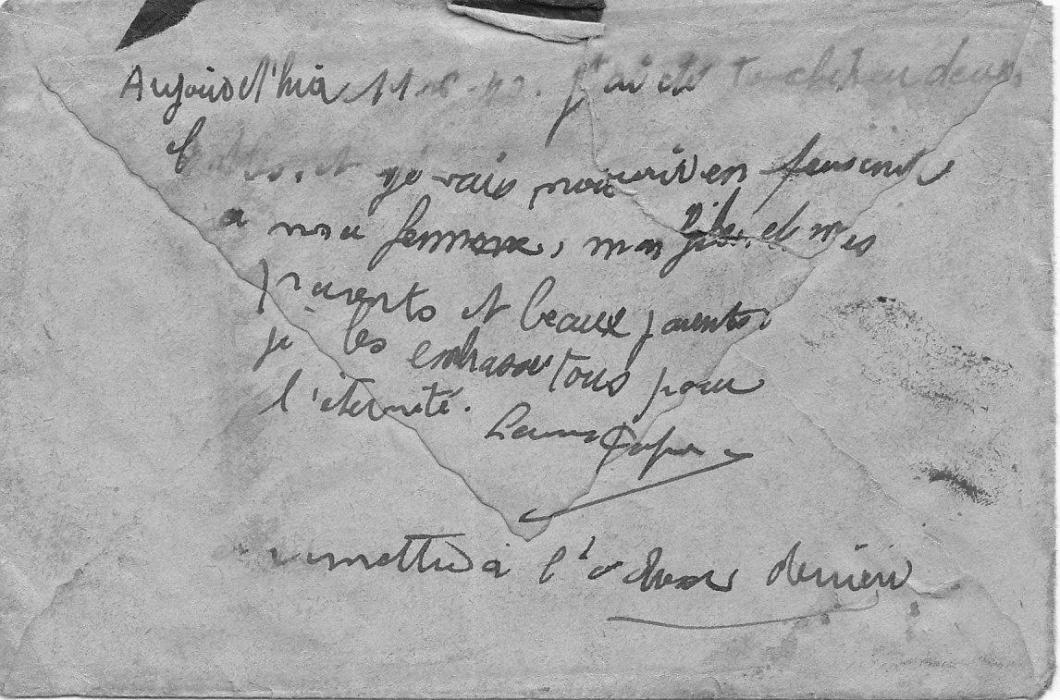 Aujourd'hui 11 - 42. J'ai été touché en deux
et je vais mourir en pensant
a ma femme, mon fils, et mes
parents et beaux parents.
je les embrasse tous pour
l'éternité.
remettre à l'adresse derrière